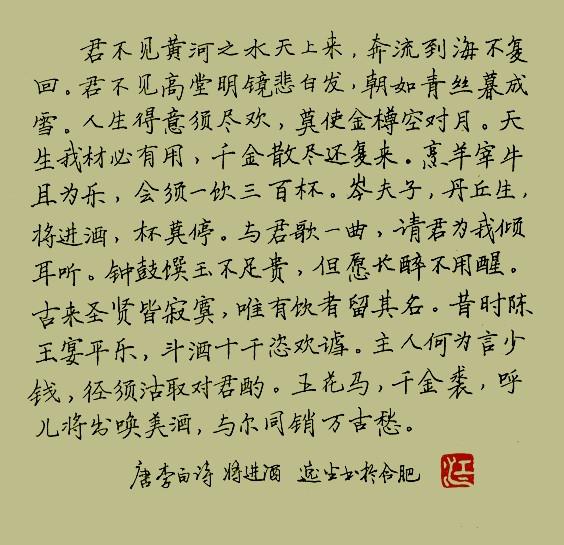 君不见黄河之水天上来，奔流到海不复
回。君不见高堂明镜悲白发，朝如青丝暮成
雪。人生得意须尽欢，莫使金樽空对月。天
生我材必有用，千金散尽还复来。烹羊宰牛
且为乐，会须一饮三百杯。岑夫子，丹丘生，
将进酒，杯莫停。与君歌一曲，请君为我倾
耳听。钟鼓馔玉不足贵，但愿长醉不用醒。
古来圣贤皆寂寞，唯有饮者留其名。昔时陈
王宴平乐，斗酒十千恣欢谑。主人何为言少
钱，径须沽取对君酌。五花马，千金裘，呼
儿将出唤美酒，与尔同销万古愁。
唐李白诗 将进酒 书于合肥
江